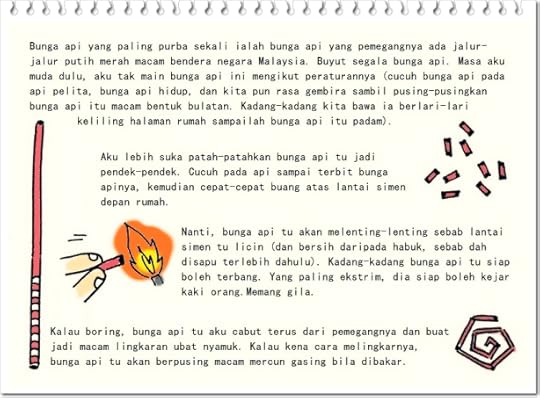 Bunga api yang paling purba sekali ialah bunga api yang pemegangnya ada jalur-
jalur putih merah macam bendera negara Malaysia. Buyut segala bunga api. Masa aku
muda dulu, aku tak main bunga api ini mengikut peraturannya (cucuh bunga api pada
api pelita, bunga api hidup, dan kita pun rasa gembira sambil pusing-pusingkan
bunga api itu macam bentuk bulatan. Kadang-kadang kita bawa ia berlari-lari
keliling halaman rumah sampailah bunga api itu padam).
Aku lebih suka patah-patahkan bunga api tu jadi
pendek-pendek. Cucuh pada api sampai terbit bunga
apinya, kemudian cepat-cepat buang atas lantai simen
depan rumah.
Nanti, bunga api tu akan melenting-lenting sebab lantai
simen tu licin (dan bersih daripada habuk, sebab dah
disapu terlebih dahulu). Kadang-kadang bunga api tu siap
boleh terbang. Yang paling ekstrim, dia siap boleh kejar
kaki orang.Memang gila.
Kalau boring, bunga api tu aku cabut terus dari pemegangnya dan buat
jadi macam lingkaran ubat nyamuk. Kalau kena cara melingkarnya,
bunga api tu akan berpusing macam mercun gasing bila dibakar.